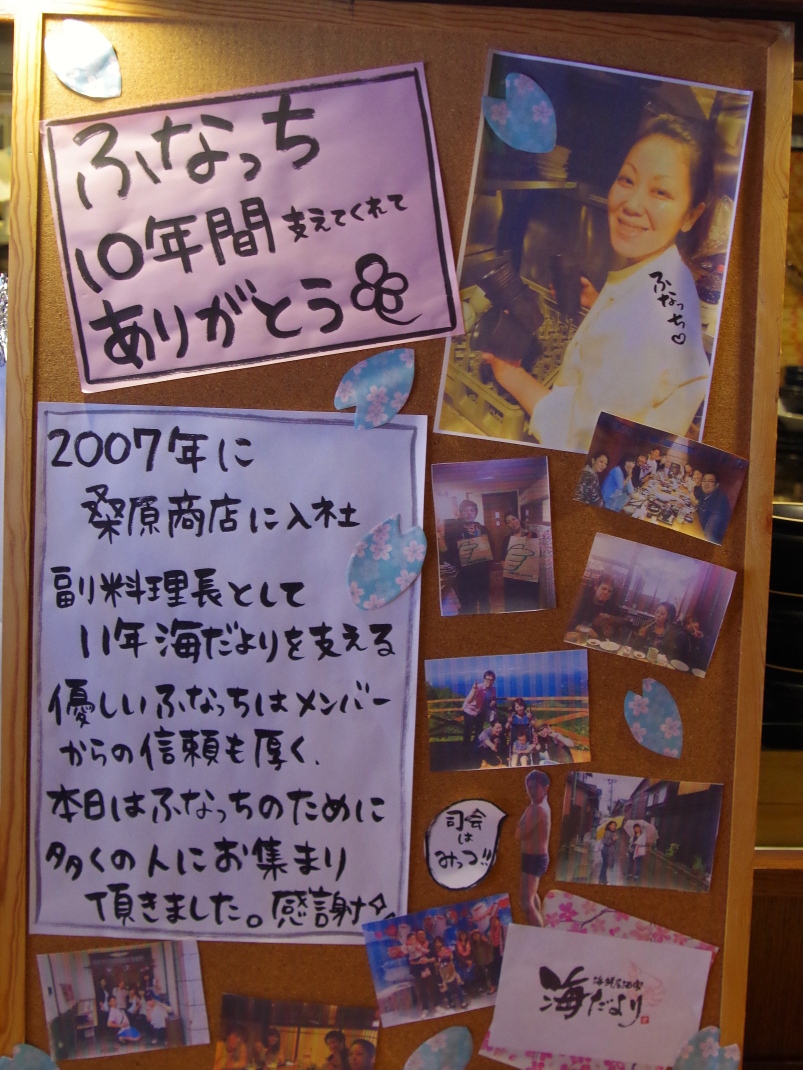 ふなっち
10年間支えてくれて
ありがとう
ふなっち♡
2007年に
桑原商店に入社
副料理長として
11年海だよりを支える
優しいふなっちはメンバー
からの信頼も厚く、
本日はふなっちのために
多くの人にお集まり
頂きました。感謝
司会
は
みっつ!!
海鮮居酒家
海だより